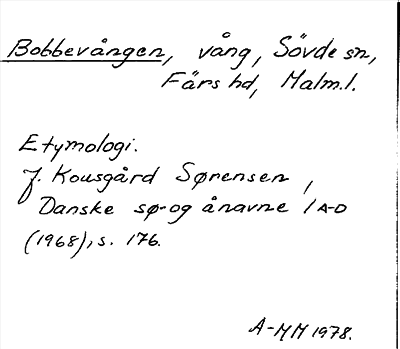 Bobbevången, vång, Sövde sn,
Färs hd, Malm.l.
Etymologi.
J. Kousgård Sørensen,
Danske sø- og ånavne 1 A-D
(1968), s. 176.
A-MM 1978.